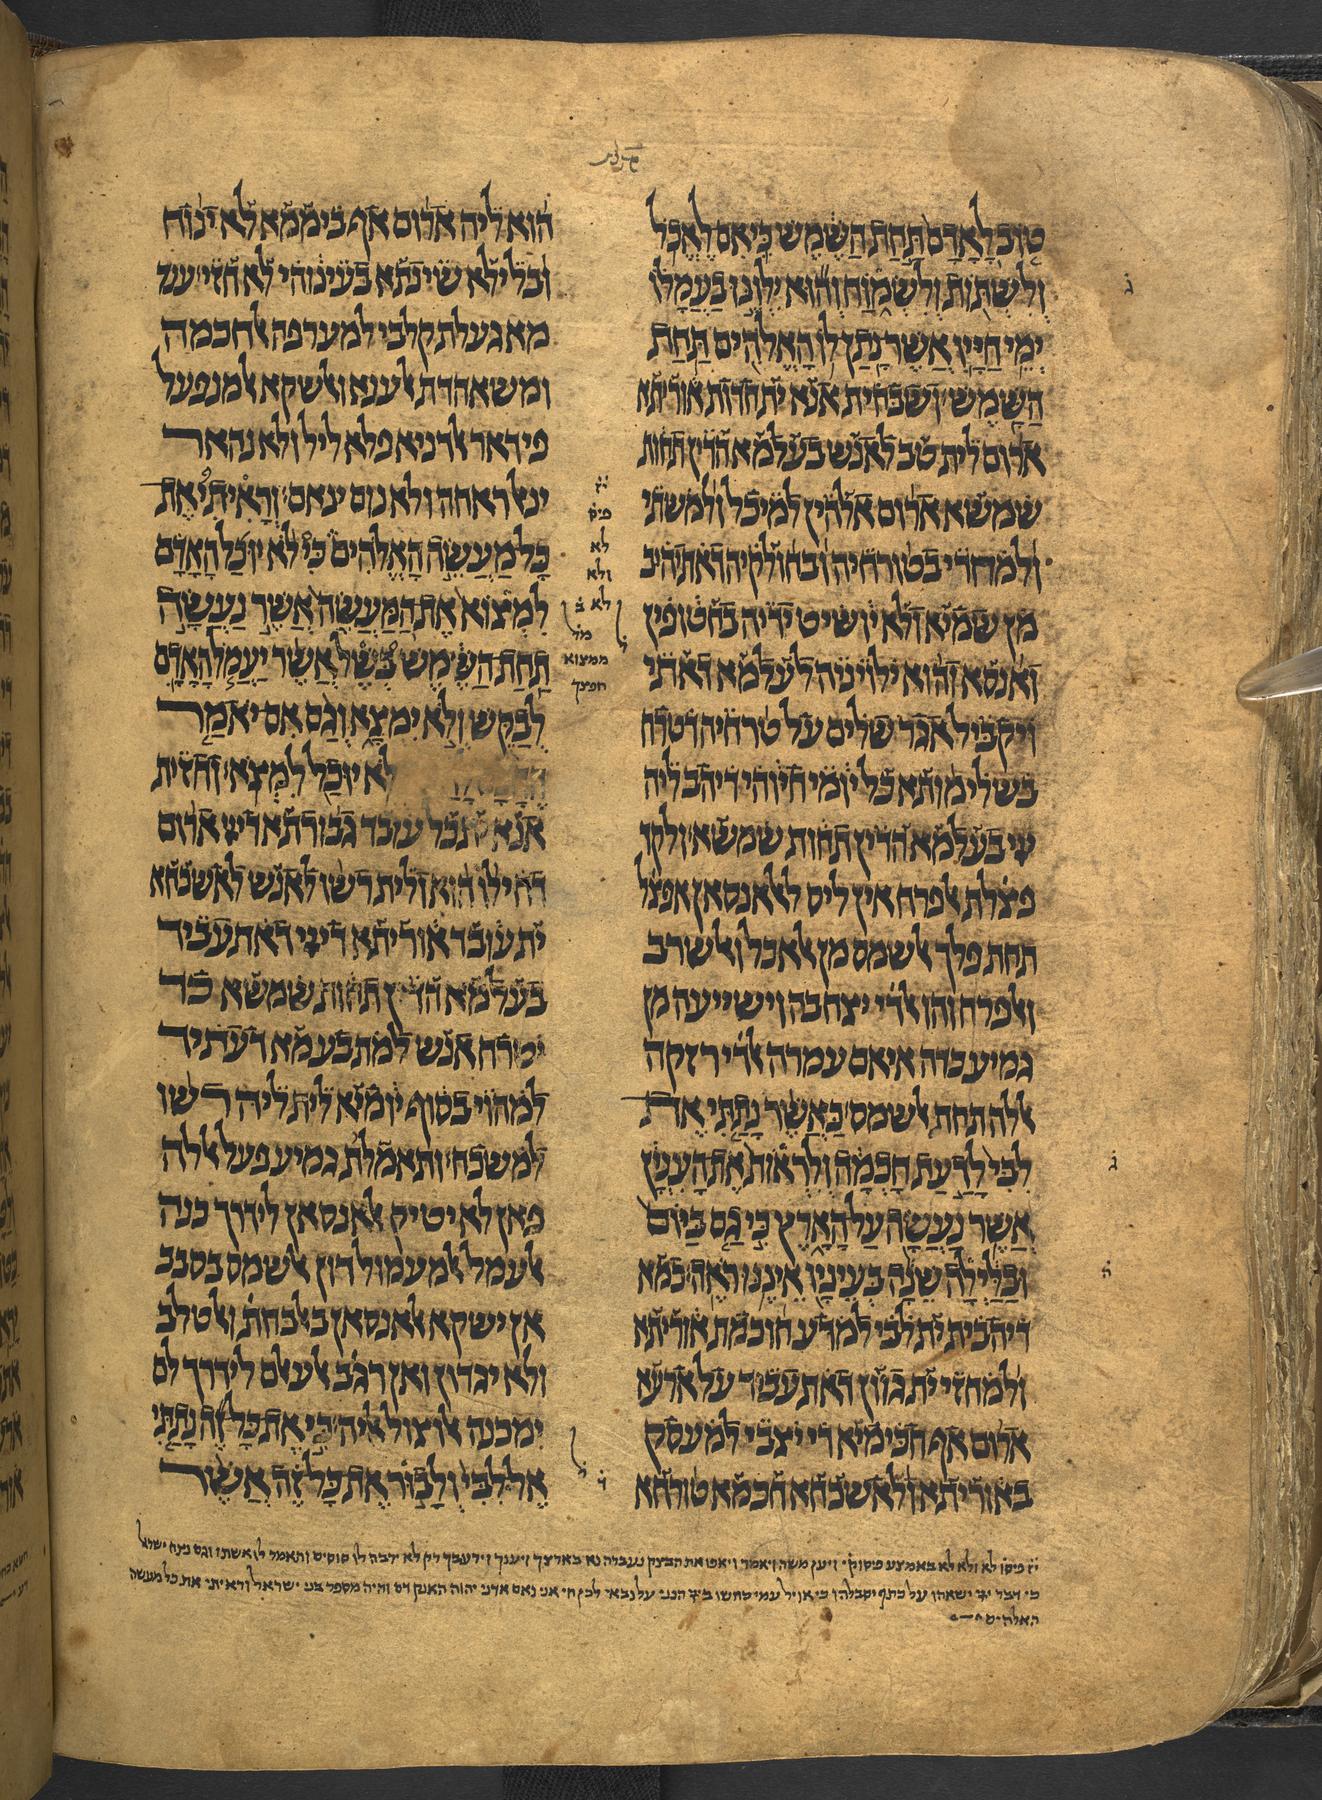 קהלת
טוֹב לָאָדָם תַּחַת הַשֶּׁמֶשׁ כִּי אִם לֶאֱכֹל
וְלִשְׁתּוֹת וְלִשְׂמוֹחַ וְהוּא יִלְוֶנּוּ בַעֲמָלוֹ
יְמֵי חַיָּיו אֲשֶׁר נָתַן לוֹ הָאֱלֹהִים תַּחַת
הַשָּׁמֶשׁ ושבחית אנא ית חדות אוריתא
ארום לית טב לאנש בעלמא הדין תחות
שמשא ארום אלהין למיכל ולמשתי
ולמחדי בטורחיה ובחולקיה דאתיהיב
מן שמיא ולא יושיט ידיה בחטופין
ואנסא והוא ילוינה לעלמא דאתי
ויקביל אגר שלים על טרחיה דטרח
בשלימותא כל יומי חיוהי דיהב ליה
ייי בעלמא הדין תחות שמשא ולקד
פצלת אלפרח אין ליס ללאנסאן אפצל
תחת פלך אלשמס מן אלאכל ואלשרב
ואלפרח והו אלדי יצחבה וישייעה מן
גמיע כדה איאם עמרה אלדי רזקה
אללה תחת אלשמס כַּאֲשֶׁר נָתַתִּי אֶת
לִבִּי לָדַעַת חָכְמָה וְלִרְאוֹת אֶת הָעִנְיָן
אֲשֶׁר נַעֲשָׂה עַל הָאָרֶץ כִּי גַם בַּיּוֹם
וּבַלַּיְלָה שֵׁנָה בְּעֵינָיו אֵינֶנּוּ רֹאֶה כמא
דיהבית ית לבי למדע חוכמת אוריתא
ולמחזי ית גוון דאתעביד על ארעא
ארום אף חכימיא די יצבי למעסק
באוריתא ולאשכחא חכמא טורחא
הוא ליה ארום אף בימָמא לא ינוח
ובליליא שינתא בעינוהי לא חזי ענד
מא געלת קלבי למערפה אלחכמה
ומשאהדת אלענא ואלשקא אלמנפעל
פי דאר אלדניא פלא ליל ולא נהאר
ינאל ראחה ולא נום ינאם וְרָאִיתִי אֶת
כָּל מַעֲשֵׂה הָאֱלֹהִים כִּי לֹא יוּכַל הָאָדָם
לִמְצוֹא אֶת הַמַּעֲשֶׂה אֲשֶׁר נַעֲשָׂה
תַחַת הַשֶּׁמֶשׁ בְּשֶׁל אֲשֶׁר יַעֲמֹל הָאָדָם
לְבַקֵּשׁ וְלֹא יִמְצָא וְגַם אִם יֹאמַר
לֹא יוּכַל לִמְצֹא וחזית
אנא ית כל עובד גבורתא דייי ארום
דחילו הוא ולית רשו לאנש לאשכחא
ית עובד אוריתא דייי דאתעביד
בעלמא הדין תחות שמשא כד
יטרח אנש למתבע מא דעתיד
למהוי בסוף יומיא לית ליה רשו
למשכח ותאמלת גמיע פעל אללה
פאן לא יטיק אלאנסאן לידרך כנה
אלעמל אלמעמול דון אלשמס בסבב
אן ישקא אלאנסאן באלבחת ואלטלב
ולא יגדון ואן רגב אלעאלם לידרך לם
ימכנה אלוצול אליה כִּי אֶת כָּל זֶה נָתַתִּי
אֶל לִבִּי וְלָבוּר אֶת כָּל זֶה אֲשֶׁר
יז
פיסו
לא
ולא
לא ב
מל
ממצוא
חפצך
ג
ג
ה
ד
יז פיסו לא ולא לא באמצע פיסוק
האלהים